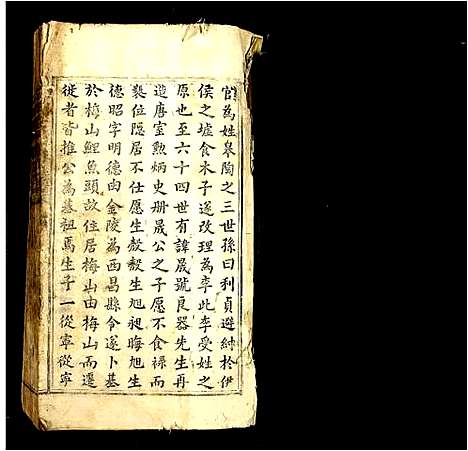 官為姓皋陶之三世孫曰利貞避紂於伊
侯之墟食木子遂改理為李此李受姓之
原也至六十四世有諱晟號良器先生再
造唐室勲炳史册晟公之子愿不食祿而
襲位隱居不仕愿生毅毅生旭晦旭生
德昭字明德由金陵為西昌縣令遂卜基
於梅山鯉魚頭故住居梅山由梅山而遷
徙者皆推公為基祖焉生子一從寧從寧